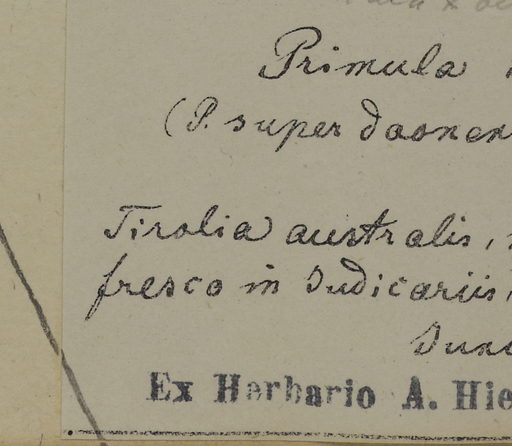 Primula
(P. super daonen
Tirolia australis,
fresco in Judicariis,
Ex Herbario A. Hie